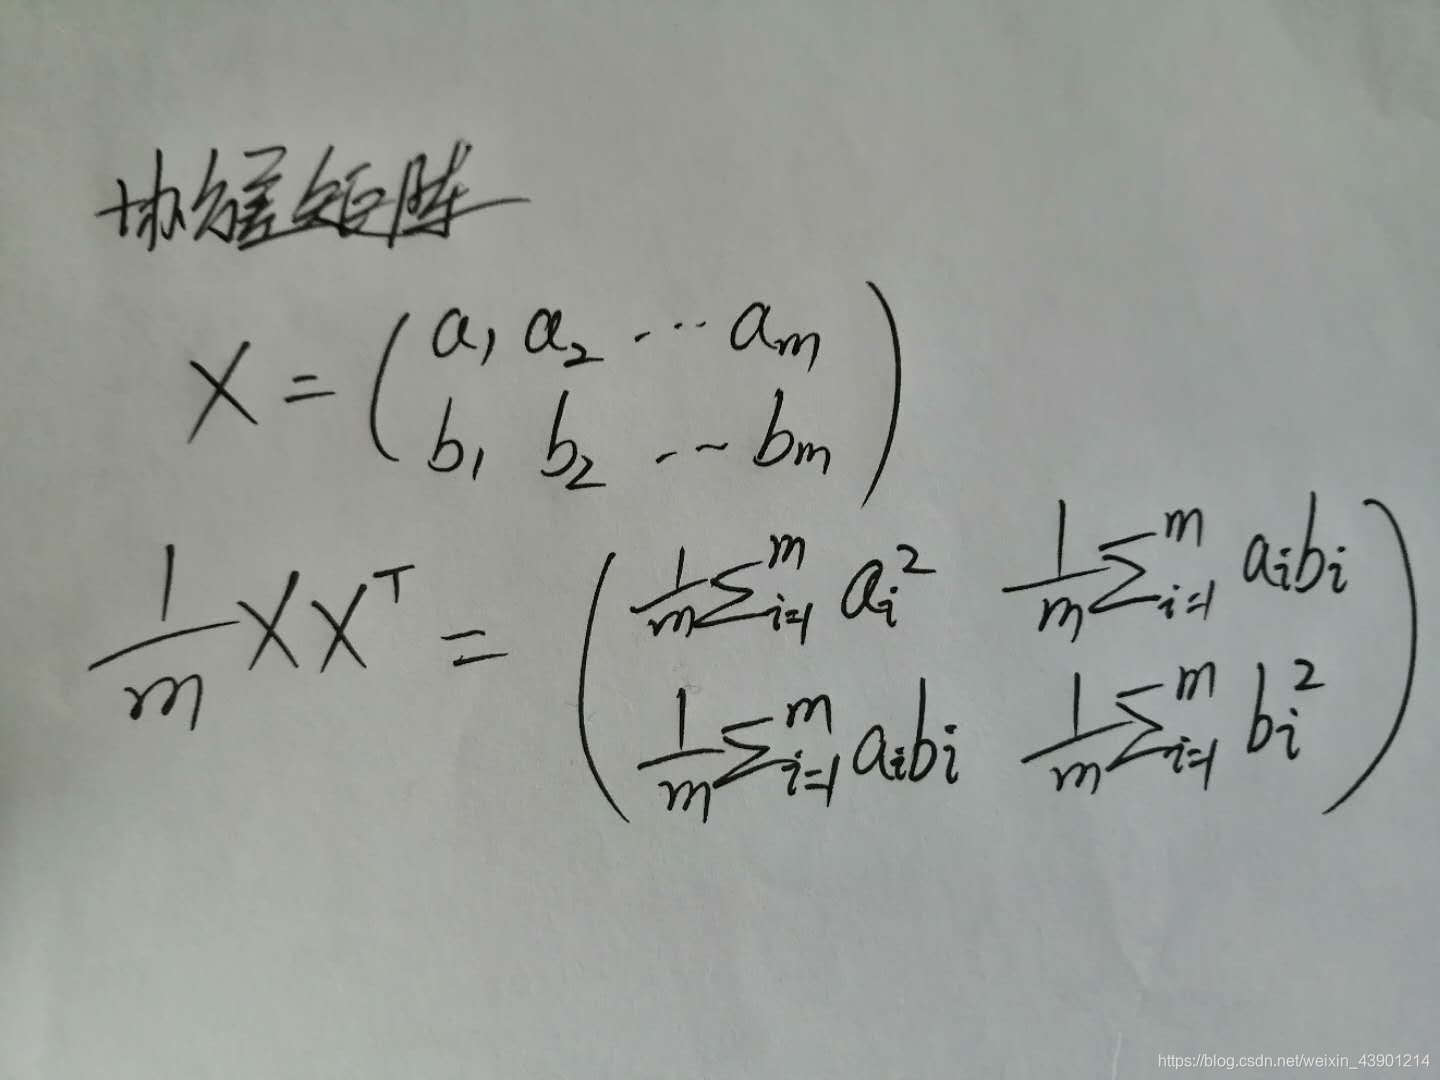 协方差矩阵
X = ( a₁ a₂ ⋯ aₘ
b₁ b₂ ⋯ bₘ )
1/m XXᵀ = ( 1/m ∑ᵢ₌₁ᵐ aᵢ² 1/m ∑ᵢ₌₁ᵐ aᵢbᵢ
1/m ∑ᵢ₌₁ᵐ aᵢbᵢ 1/m ∑ᵢ₌₁ᵐ bᵢ² )
https://blog.csdn.net/weixin_43901214